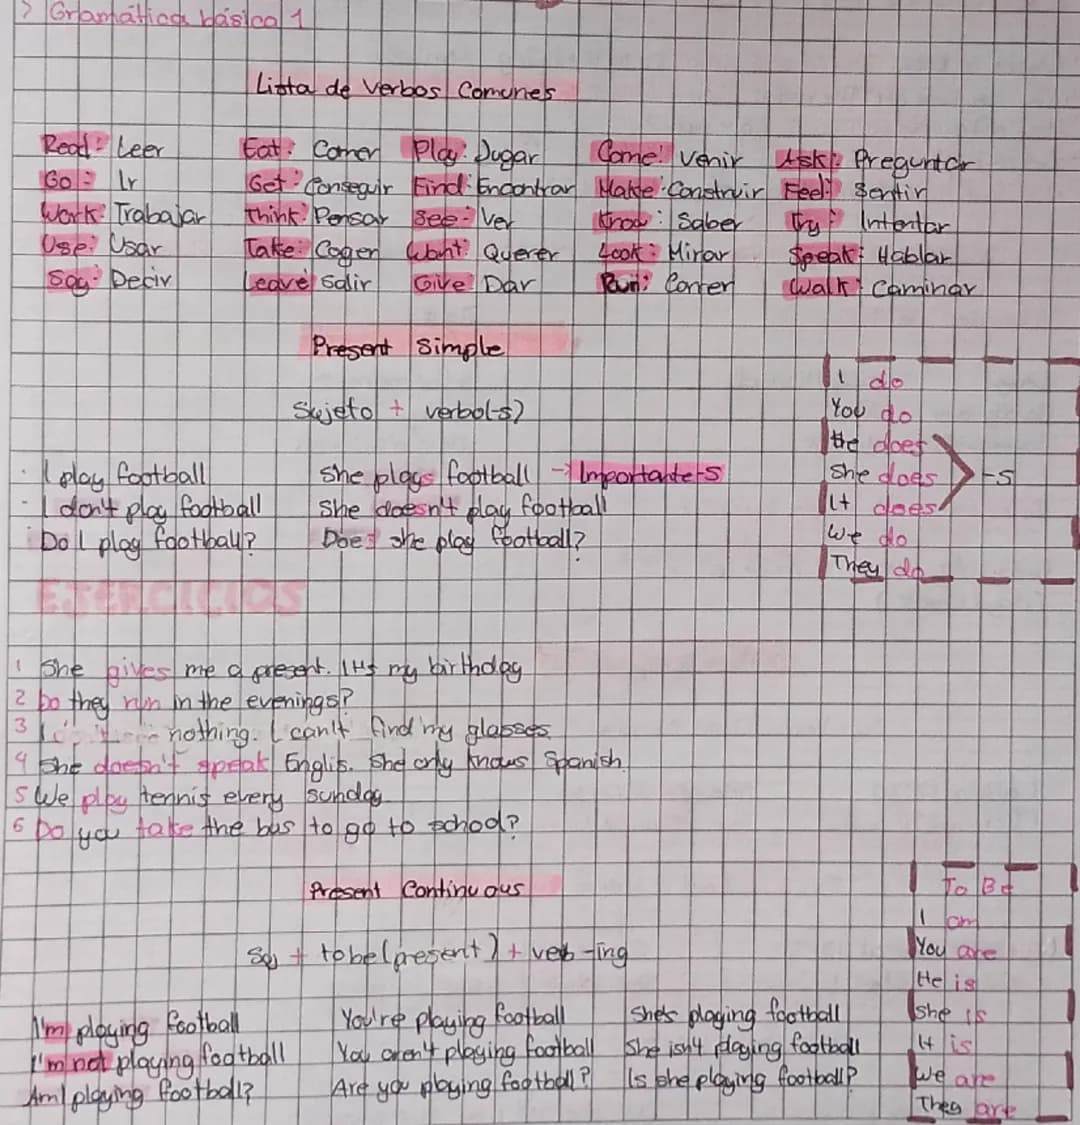 > Gramática básica 1
Lista de verbos Comunes
Read: Leer Eat: Comer Play: Jugar Come: Venir Ask: Preguntar
Go: Ir Get: Conseguir Find: Encontrar Make: Construir Feel: Sentir
Work: Trabajar Think: Pensar See: Ver Know: Saber Try: Intentar
Use: Usar Take: Coger Want: Querer Look: Mirar Speak: Hablar
Say: Decir Leave: Salir Give: Dar Run: Correr Walk: Caminar
Present Simple
Sujeto + verbo(-s)
I play football She plays football → Importante -S
I don't play football She doesn't play football
Do I play football? Does she play football?
I do
You do
He does
She does -S
It does
We do
They do
EJERCICIOS
1 She gives me a present. It's my birthday
2 Do they run in the evenings?
3 I don't see nothing. I can't find my glasses.
4 She doesn't speak Englis. She only knows Spanish.
5 We play tennis every sunday
6 Do you take the bus to go to school?
Present Continuous
Suj + to be (present) + verb -ing
I'm playing football You're playing football She's playing football
I'm not playing football You aren't playing football She isn't playing football
Am I playing football? Are you playing football? Is she playing football?
To Be
I am
You are
He is
She is
It is
We are
They are